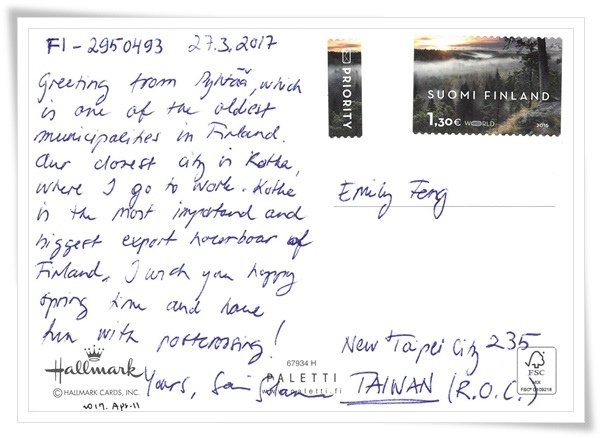 FI-2950493 27.3.2017
Greeting from Pyhtää, which
is one of the oldest
municipalities in Finland.
Our closest city is Kotka,
where I go to work. Kotka
is the most important and
biggest export
Finland. I wish you happy
spring time and have
fun with postcrossing!
Yours,
PRIORITY
SUOMI FINLAND
1,30€ WORLD
2016
Emily Feng
New Taipei City 235
TAIWAN (R.O.C.)
Hallmark
© HALLMARK CARDS, INC.
2017. Apr. 11
67934 H
PALETTI
FSC
MIX